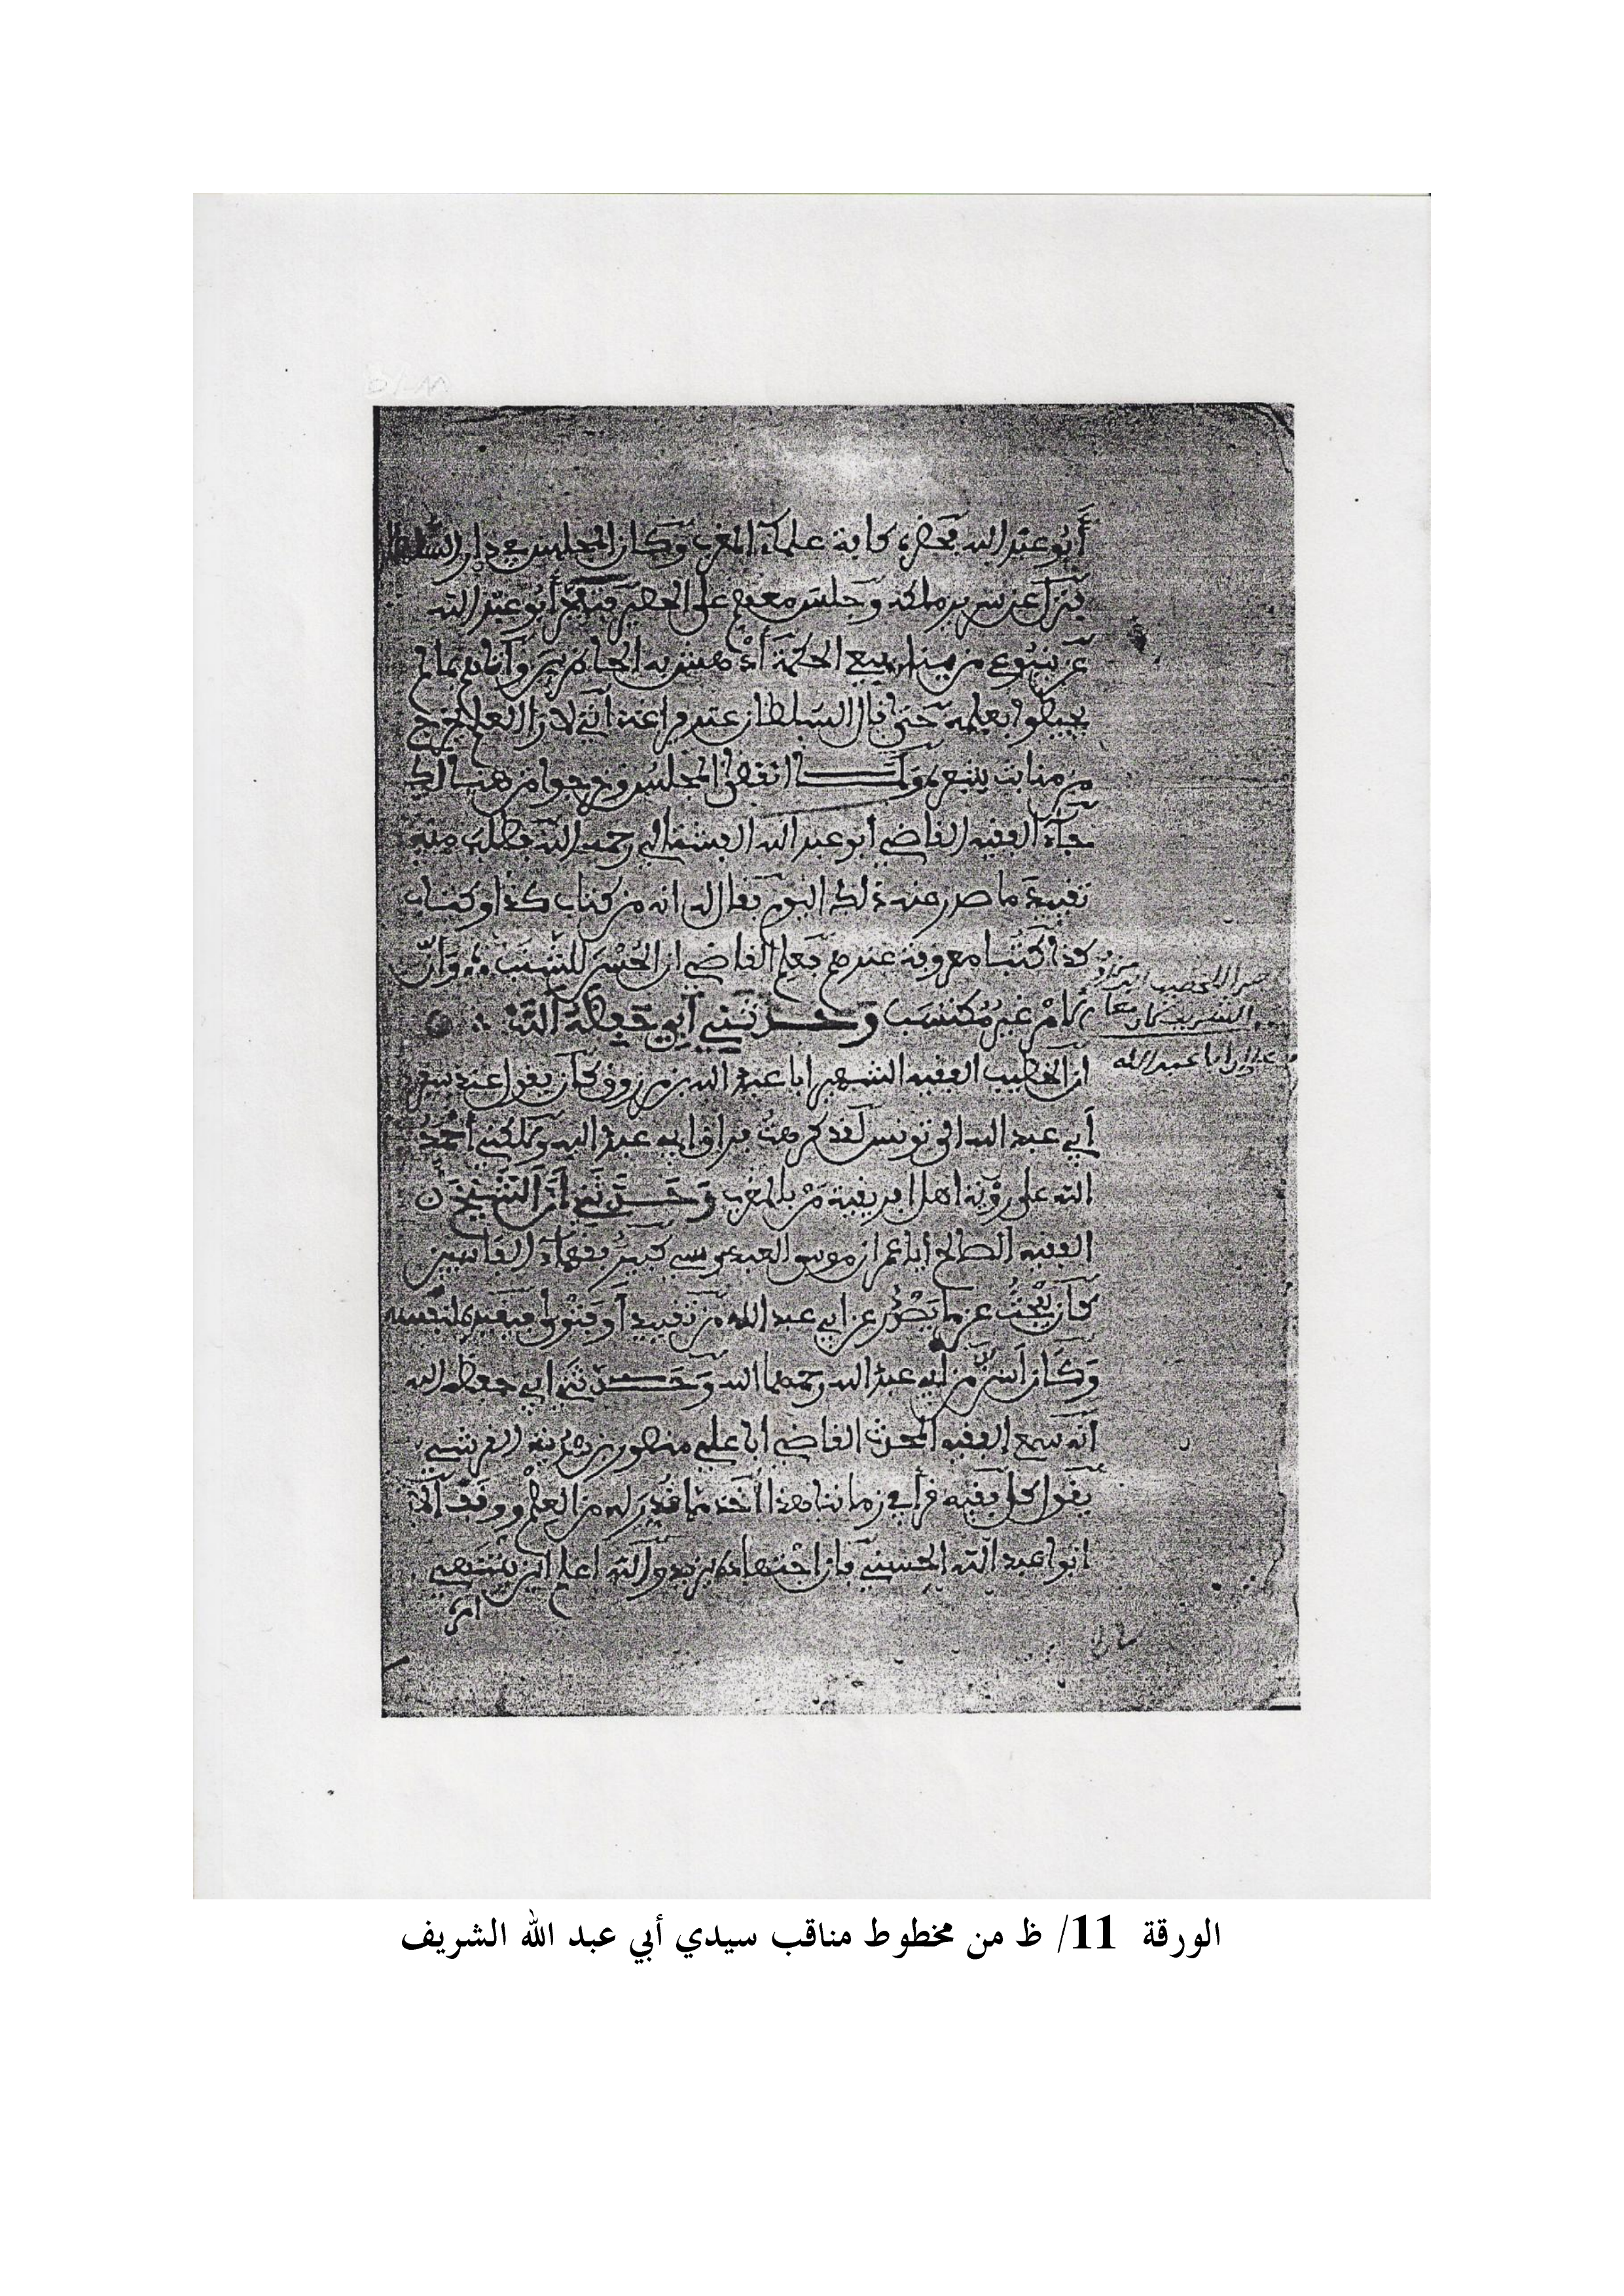 أبو عبد الله بمحضره كافة علماء المغرب وكان المجلس في دار السلطان
فنزل عن سرير ملكه وجلس معهم على الحصير فتفجر أبو عبد الله
عن ينبوع من ينابيع الحكمة أدهش به الحاضرين وأتاهم بما لم
يحيطوا بعلمه حتى قال السلطان عند فراغه اني لارا العلم يخرج
من منابت شعره ولما انفض المجلس وخرجوا من هنالك
جاءه الفقيه القاضي أبو عبد الله الفشتالي رحمه الله فطلب منه
تقييد ما صدر عنه ذلك اليوم فقال له انه من كتاب كذا وكتاب
كذا كتبا معروفة عندهم فعلم القاضي ان الحسن للشنب وان
رام غير مكتسب وحدثني أبي حفظه الله
ان الخطيب الفقيه الشهير ابا عبد الله بن مرزوق كان يقول عند سفر
أبي عبد الله الى تونس لقد كرهت فراق ابي عبد الله ولكني أحمد
الله على رؤية اهل افريقية من بالمغرب وحدثني أن الشيخ
الفقيه الصالح ابا عمران موسى العبدوسي كبير فقهاء الفاسيين
كان يبحث عن ما يصدر عن ابي عبد الله من تقييد أو فتوى فيقيده لنفسه
وكان أسن من ابي عبد الله رحمهما الله وحدثني ابي حفظه الله
أنه سمع الفقيه المحدث القاضي ابا علي منصور بن هدية القرشي
يقول كل فقيه قرأ في زماننا هذا أخذ ما قدر له من العلم ووقف الا
ابو عبد الله الحسني فان اجتهاده يزيد والله اعلم اين ينتهي
امره
الورقة 11/ ظ من مخطوط مناقب سيدي أبي عبد الله الشريف